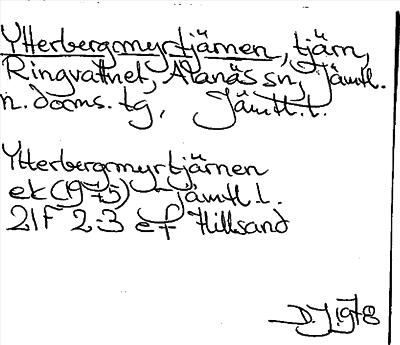 Ytterbergmyrtjärnen, tjärn,
Ringvattnet, Alanäs sn, Jämtl.
n. doms. tg, Jämtl. l.
Ytterbergmyrtjärnen
ek (1975) Jämtl l.
21F 2-3 ef Hillsand
D.J 1978